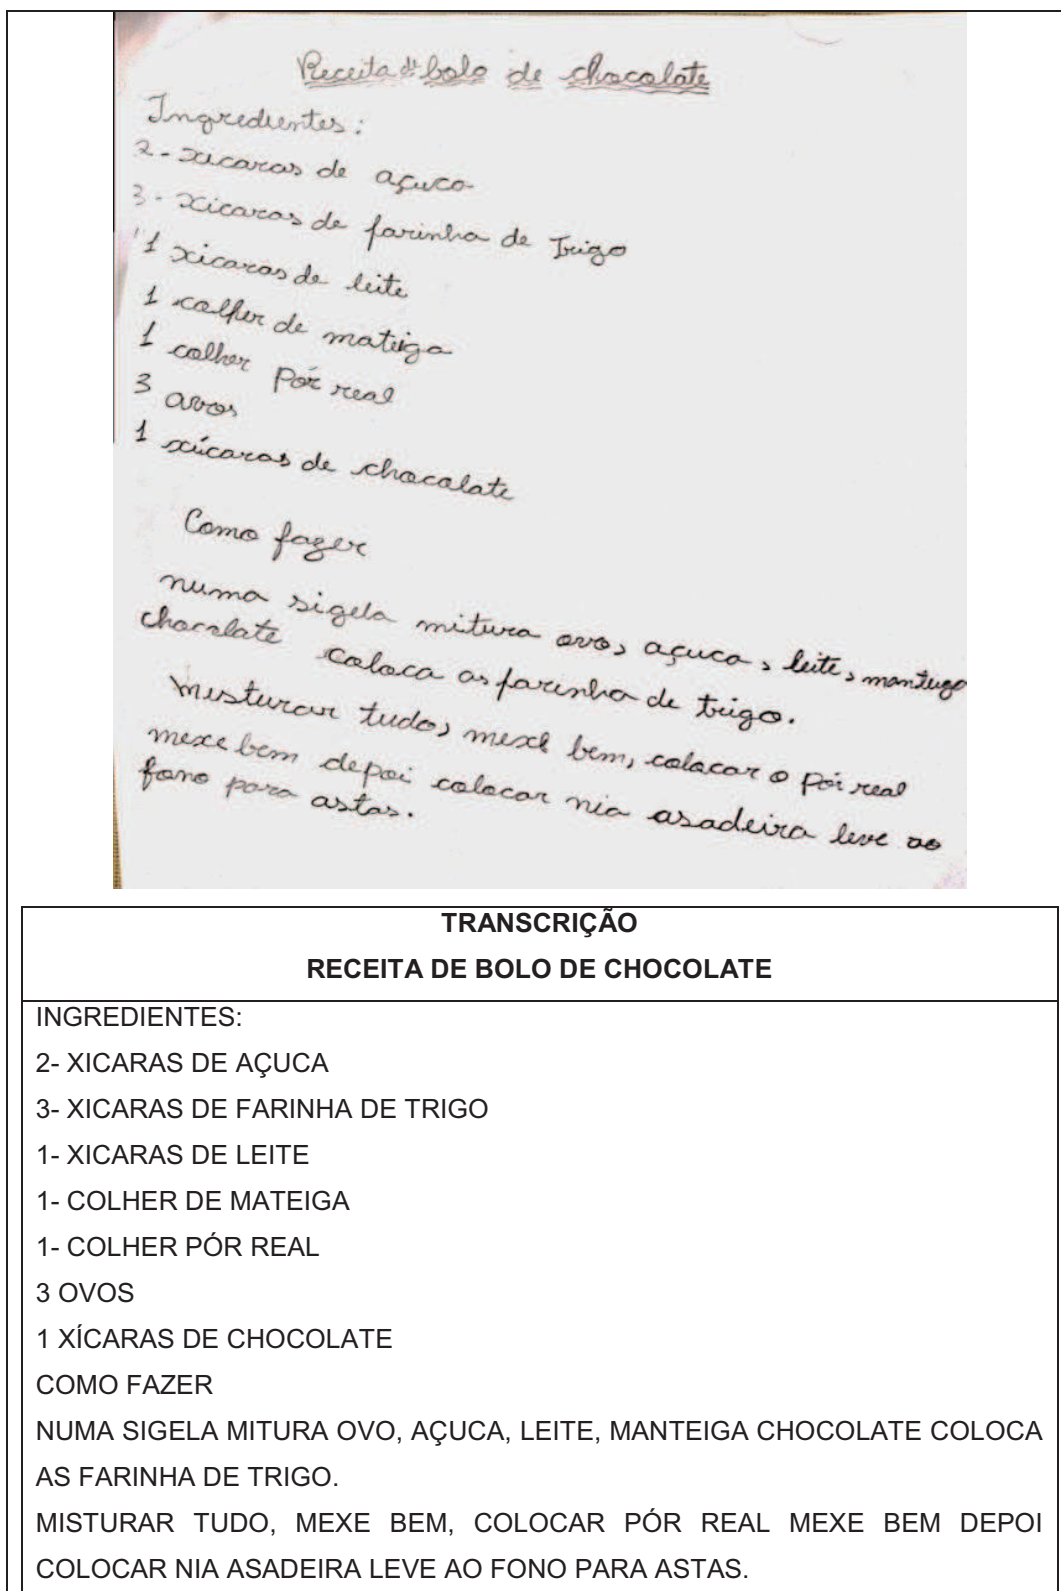 Receita de bolo de chocolate
Ingredientes:
2 - xicaras de açuca
3 - xicaras de farinha de Trigo
1 xicaras de leite
1 colher de mateiga
1 colher Pór real
3 ovos
1 xícaras de chocolate
Como fazer
numa sigela mitura ovo, açuca, leite, manteiga
chocolate coloca as farinha de trigo.
misturar tudo, mexe bem, colocar o pór real
mexe bem depoi colocar nia asadeira leve ao
fono para astas.
TRANSCRIÇÃO
RECEITA DE BOLO DE CHOCOLATE
INGREDIENTES:
2- XICARAS DE AÇUCA
3- XICARAS DE FARINHA DE TRIGO
1- XICARAS DE LEITE
1- COLHER DE MATEIGA
1- COLHER PÓR REAL
3 OVOS
1 XÍCARAS DE CHOCOLATE
COMO FAZER
NUMA SIGELA MITURA OVO, AÇUCA, LEITE, MANTEIGA CHOCOLATE COLOCA
AS FARINHA DE TRIGO.
MISTURAR TUDO, MEXE BEM, COLOCAR PÓR REAL MEXE BEM DEPOI
COLOCAR NIA ASADEIRA LEVE AO FONO PARA ASTAS.